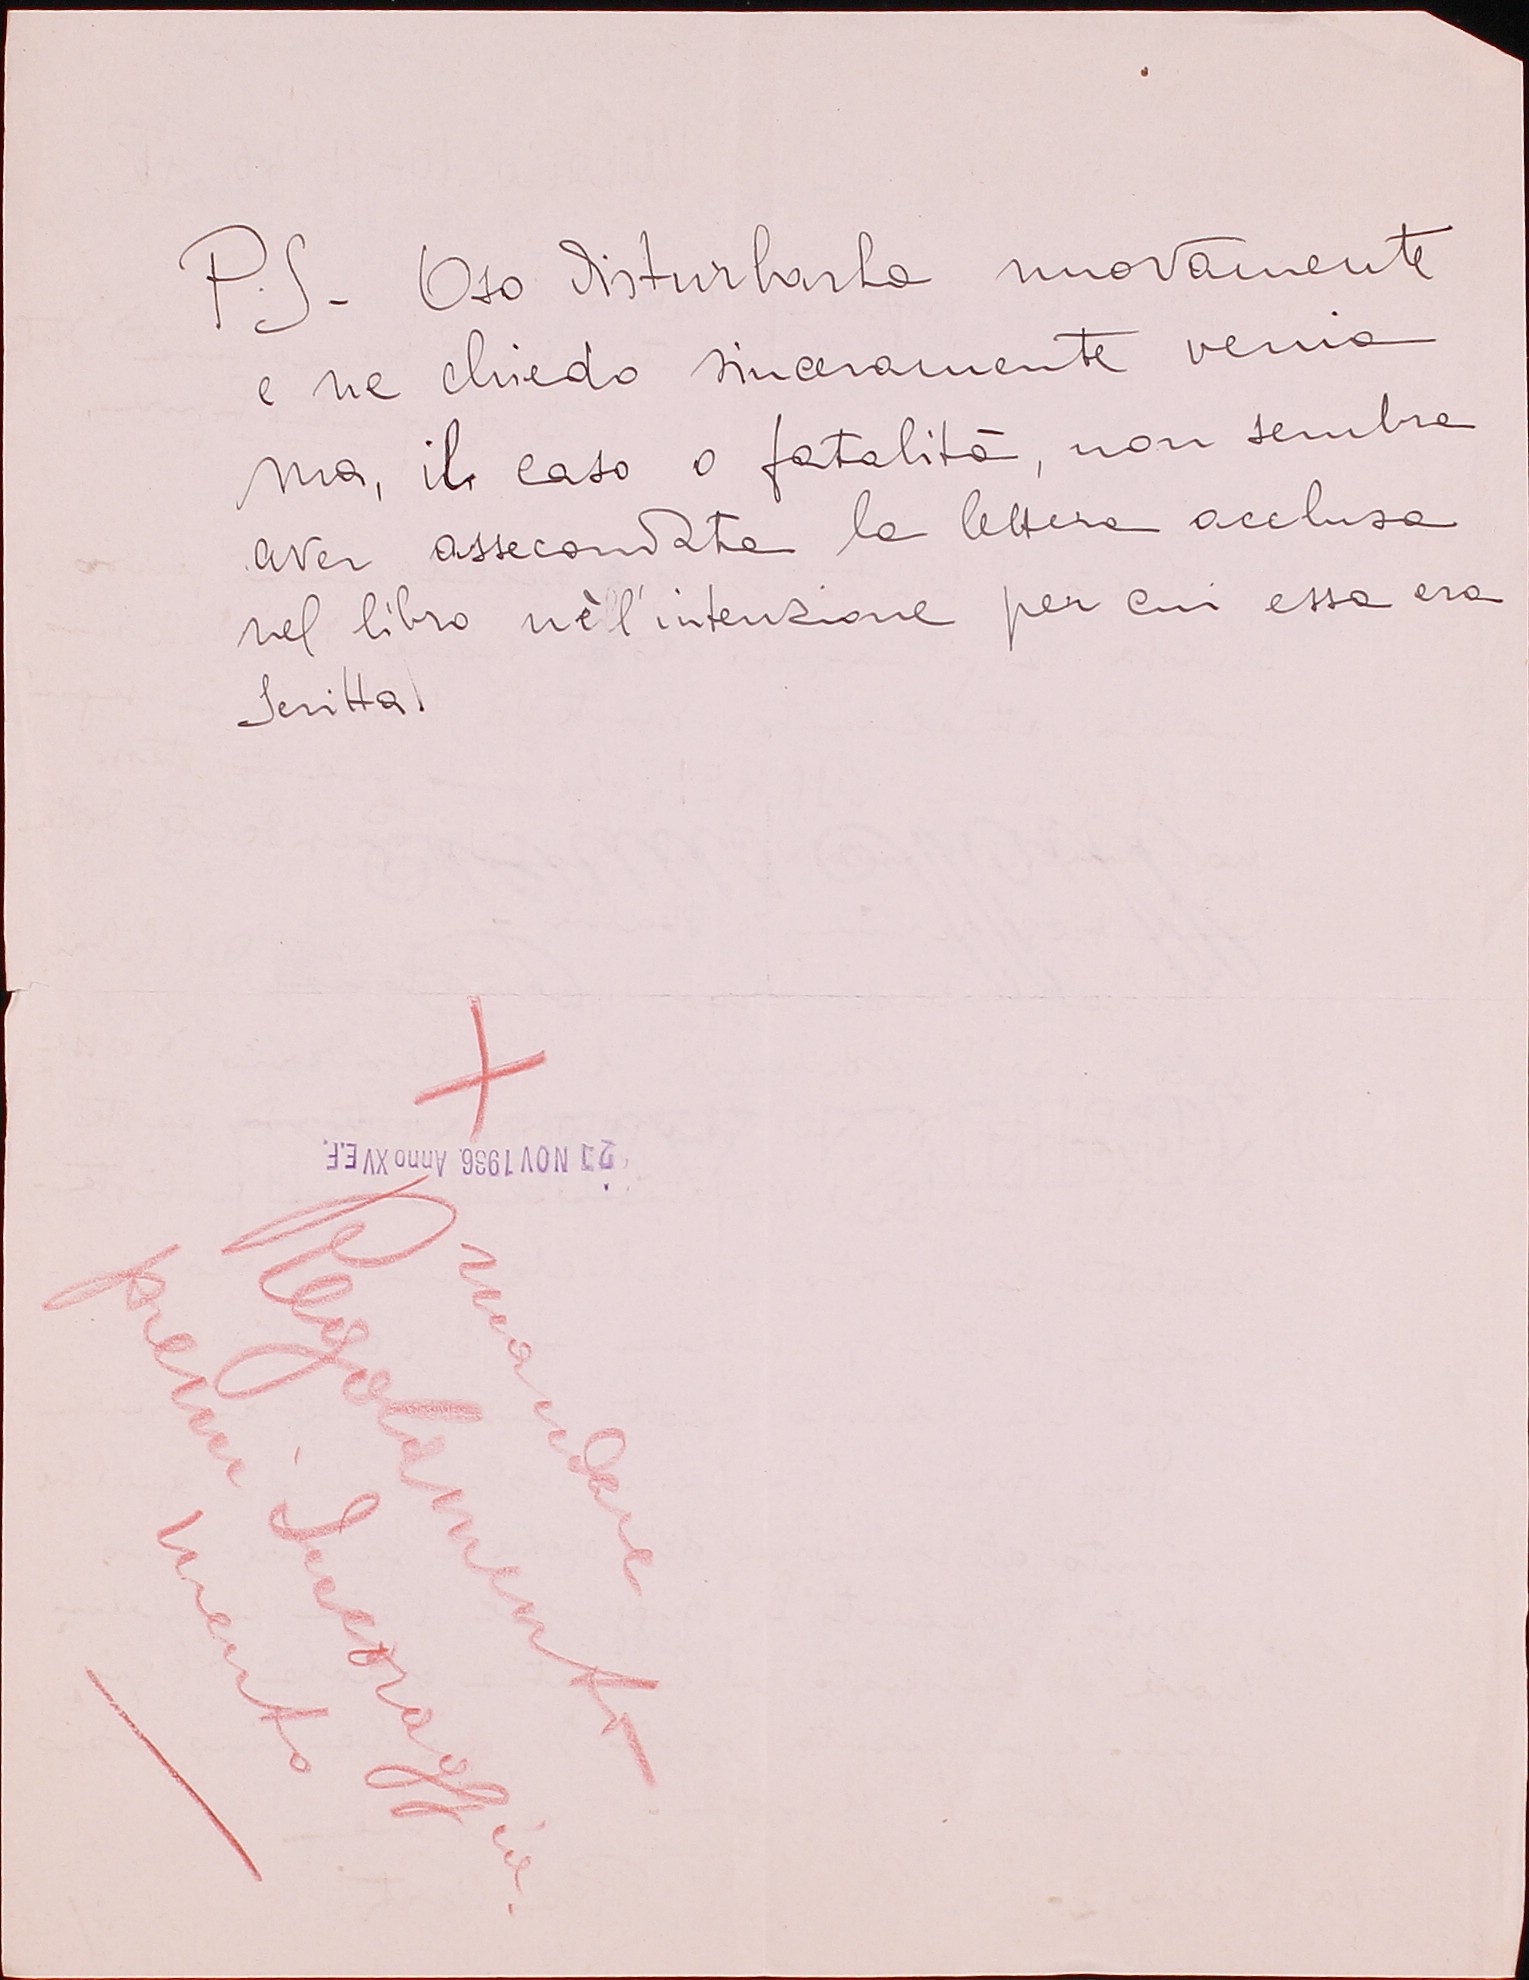 P.S- Oso disturbarla nuovamente
e ne chiedo sinceramente venia
ma, il caso o fatalità, non sembra
aver assecondata la lettera acclusa
nel libro nèll'intenzione per cui essa era
scritta.
21 NOV 1936 Anno XV E.F.
mandare
Regolamento
premi Incoraggia-
mento